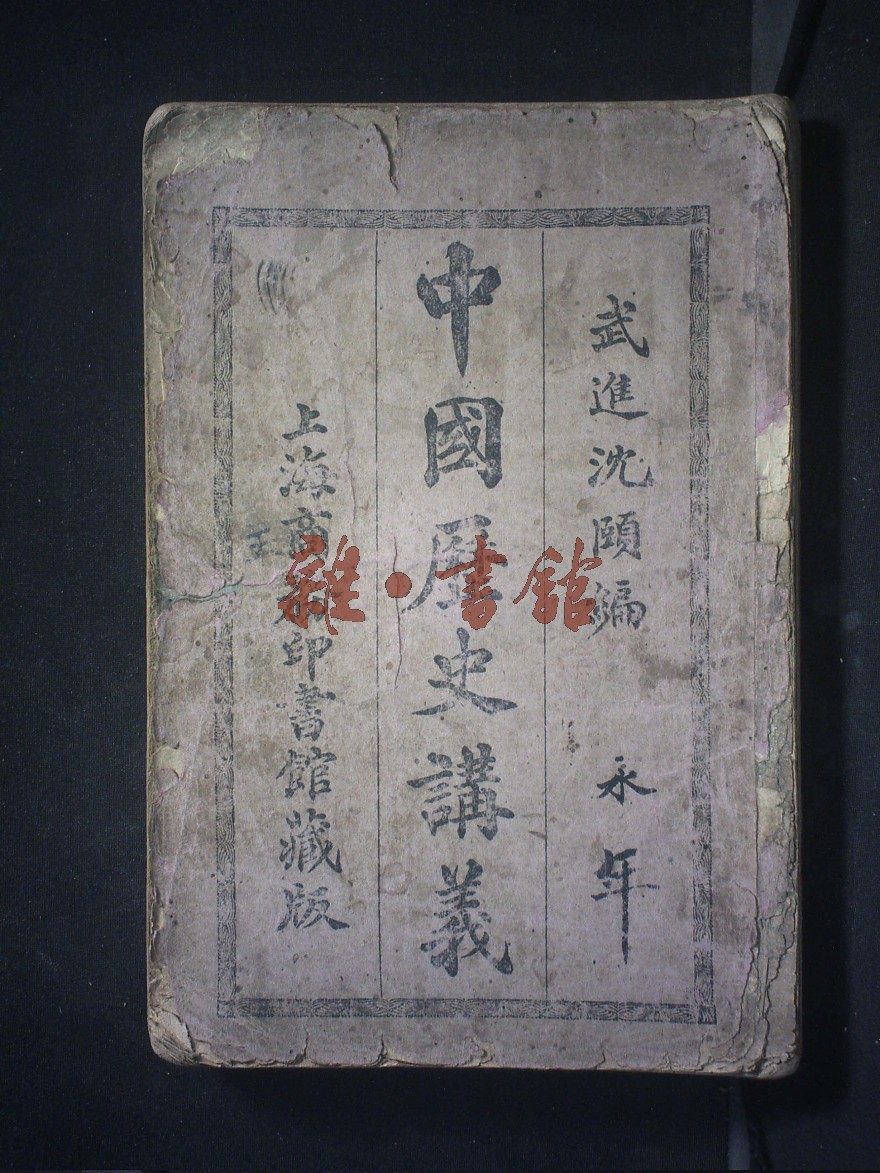 武進沈頤編
永年
中國歷史講義
上海商務印書館藏版
雜·書館